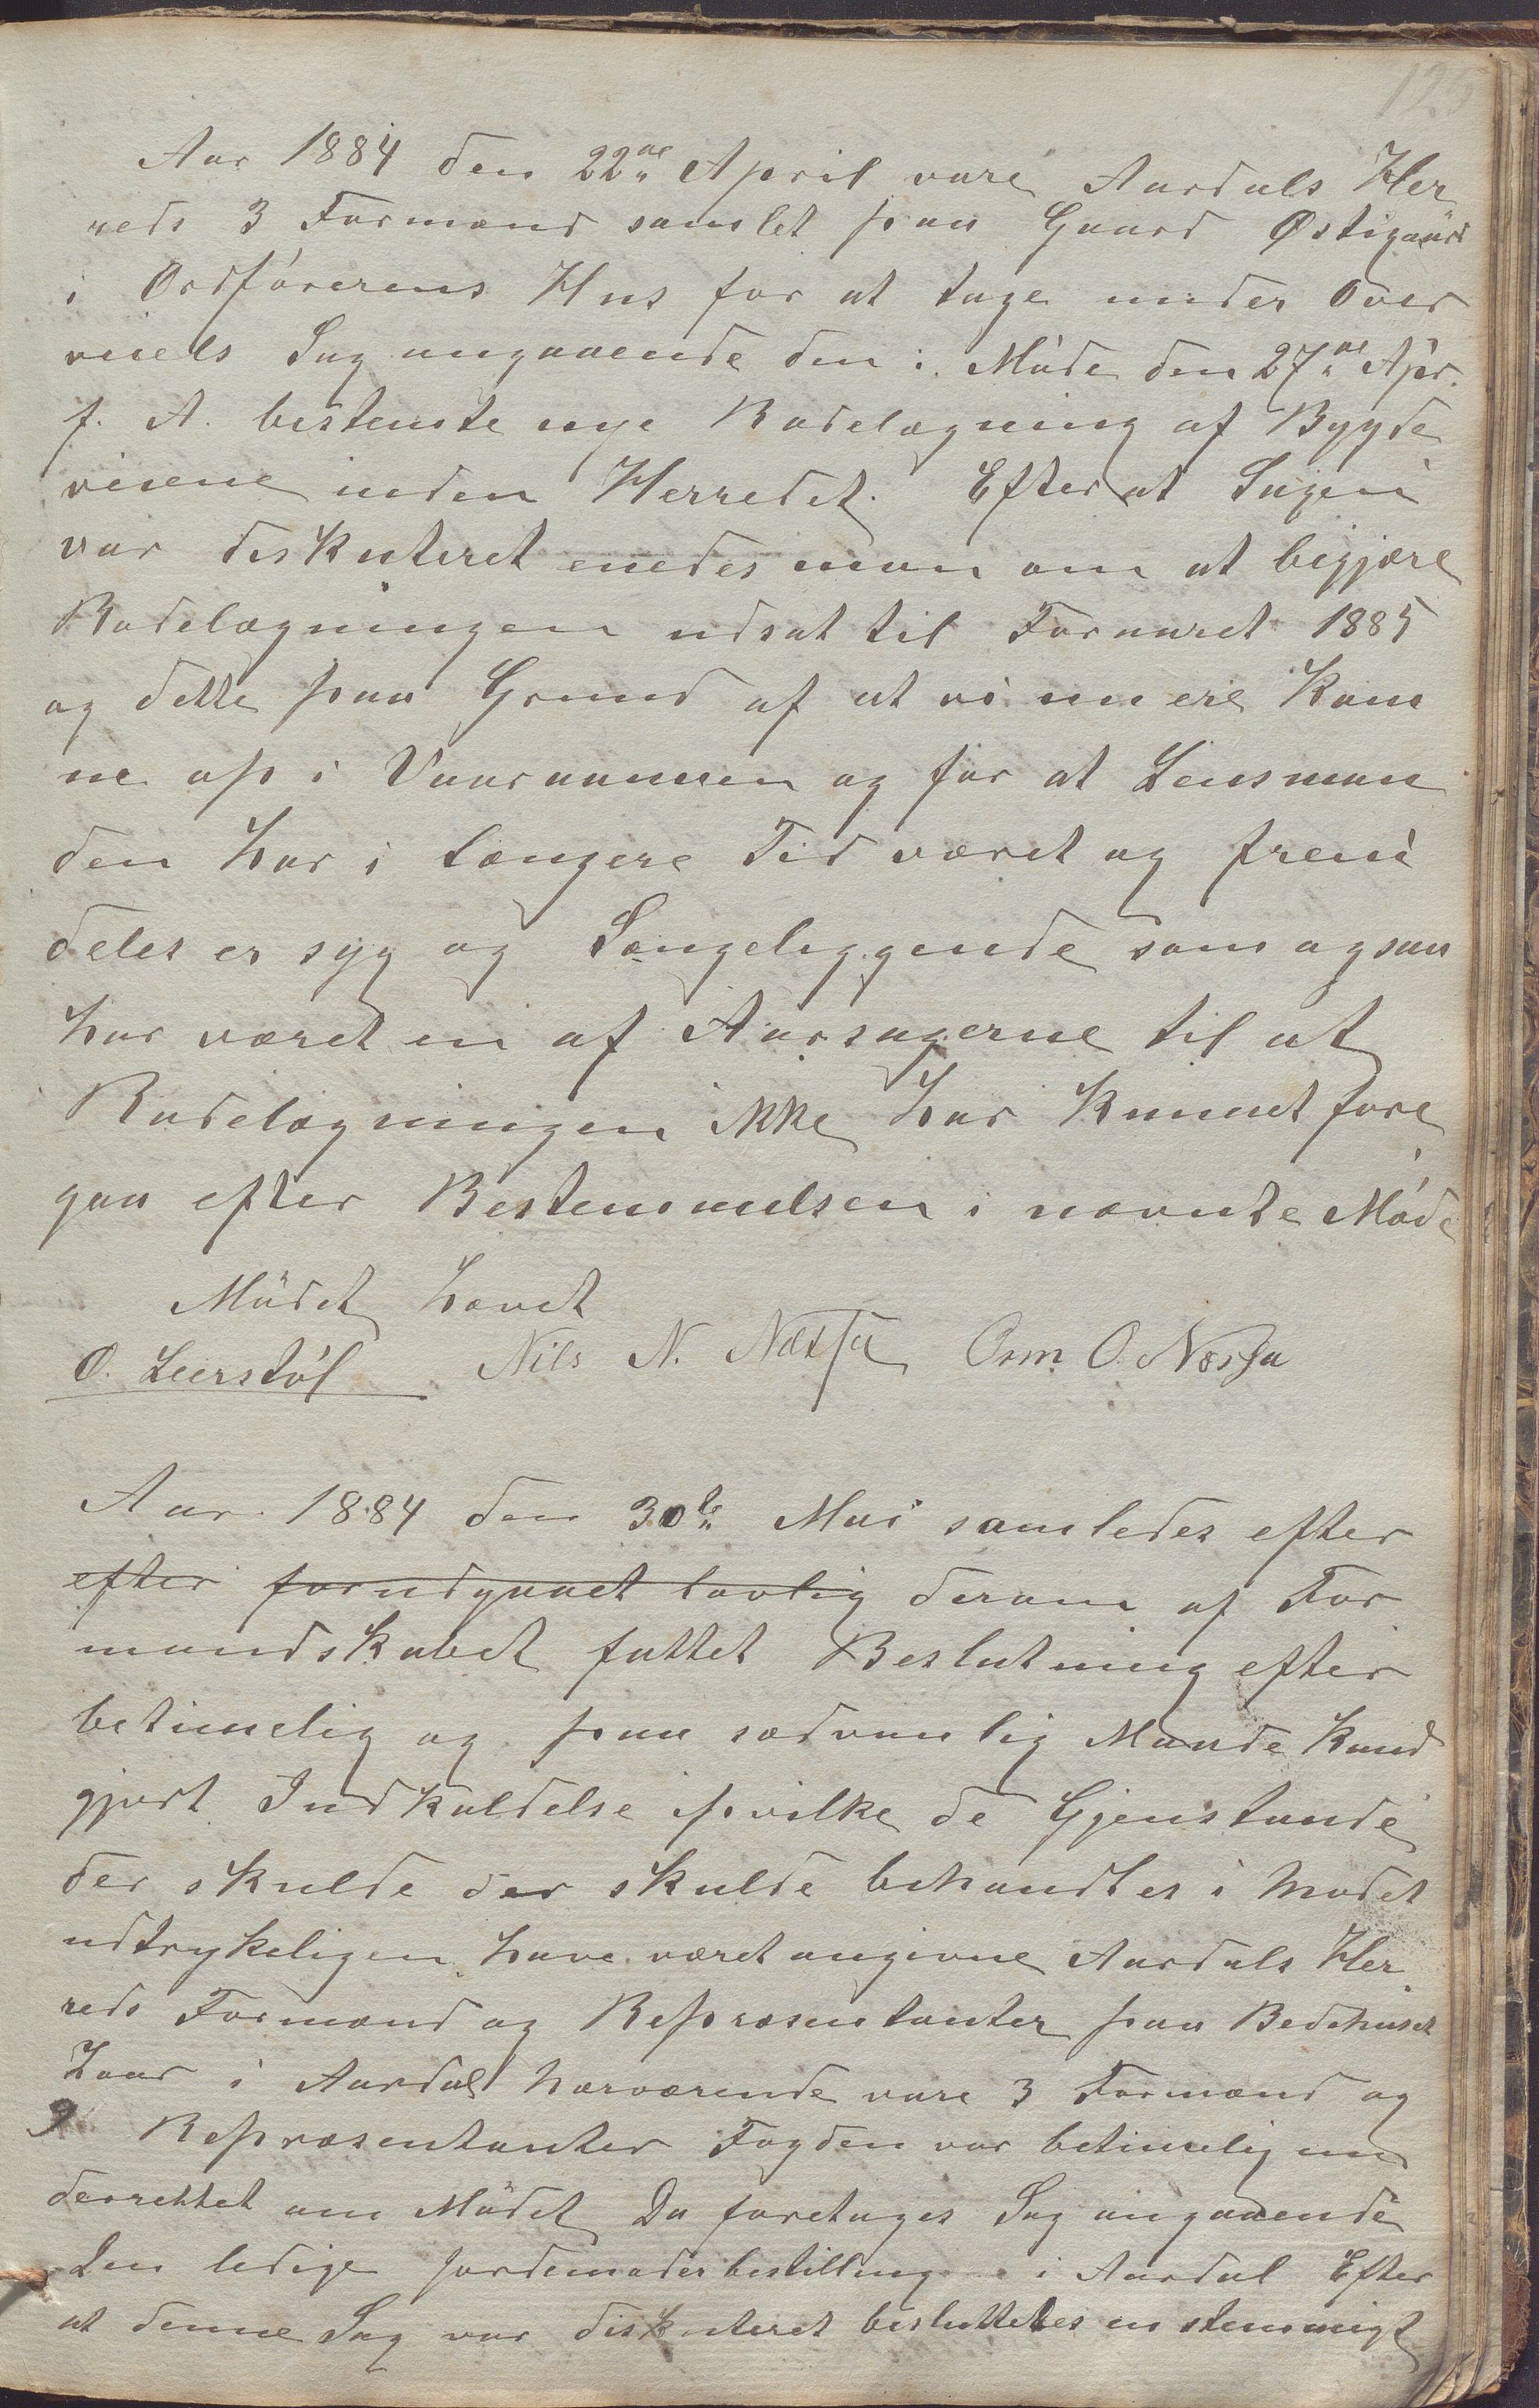 125
Aar 1884 den 22de April vare Aardals Her
reds 3 Formænd samlet paa Gaard Østigaard
i Ordførerens Hus for at tage under Over
vieels Sag angaaende den i Møde den 27de Apr.
f. A. bestemte nye Rodelægning af Bygde
veiene inden Herredet. Efterat Sagen
var diskuteret enedes man om at begjære
Rodelægningen udsat til Foraaret 1885
og dette paa Grund af at vi nu ere kom
ne op i Vaaraannen og for at Lensman
den har i længere Tid været og frem
deles er syg og Sengeliggende som ogsaa
har været en af Aarsagerne til at
Rodelægningen ikke har kunnet fore
gaa efter Bestemmelsen i nævnte Møde
Mödet hævet
O. Leerstøl Nils N. Nessa Orm O. Nessa
Aar 1884 den 30te Mai samledes efter
efter forudgaaet lovlig derom af For
mandskabet fattet Beslutning efter
betimelig og paa sædvanlig Maade kund
gjort Indkaldelse ihvilke de Gjenstande
der skulde der skulde behandles i Mødet
udtrykeligen have været angivne Aardals Her
reds Formænd og Repræsentanter paa Bedehuset
Zoar i Aardal Nærværende vare 3 Formænd og
9 Repræsentanter Fogden var betimelig un
derrettet om Mödet Da foretages Sag angaaende
Den ledige Jordemoderbestilling i Aardal Efter
at denne Sag var diskuteret besluttedes enstemmigt